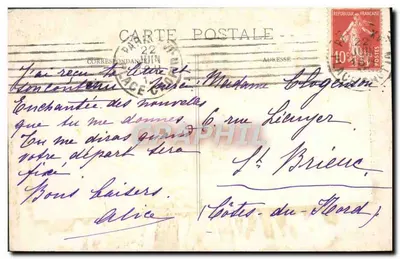 CARTE POSTALE
CORRESPONDANCE
ADRESSE
RÉPUBLIQUE FRANÇAISE
10
POSTES
PARIS
22
JUIN
J'ai reçu ta lettre et
son contenu
Enchantée des nouvelles
que tu me donnes
Tu me diras quand
votre départ sera
fixé.
Bons baisers.
Alice
Madame Clogenson
6 rue
St Brieuc
(Côtes-du-Nord)